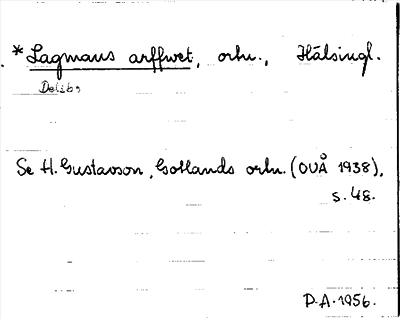 * Lagmans arffwet, ortn., Hälsingl.
Delsbo
Se H. Gustavson, Gotlands ortn. (OUÅ 1938),
s. 48.
P.A. 1956.